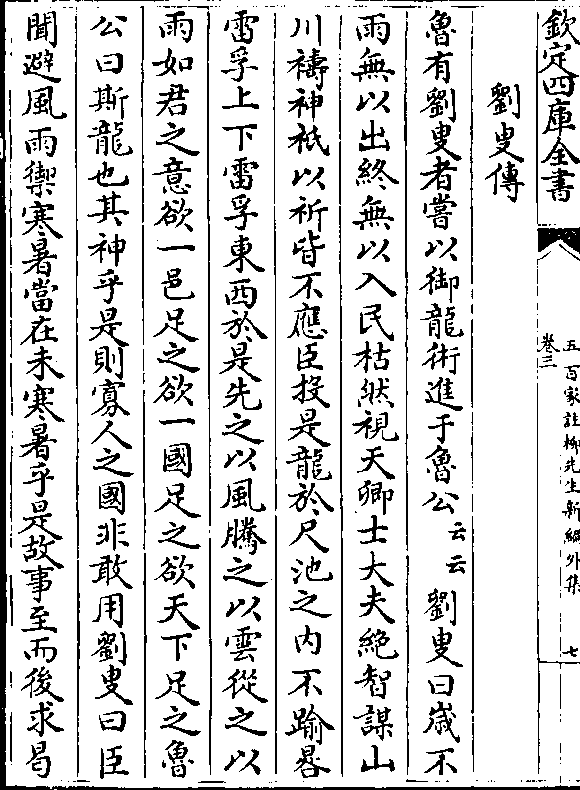 欽定四庫全書
卷三
五百家註柳先生新編外集
七
劉叟傳
魯有劉叟者嘗以御龍術進于魯公云云劉叟曰歲不
雨無以出終無以入民枯然視天卿士大夫絶智謀山
川禱神祇以祈皆不應臣投是龍於尺池之内不踰晷
雷孚上下雷孚東西於是先之以風騰之以雲從之以
雨如君之意欲一邑足之欲一國足之欲天下足之魯
公曰斯龍也其神乎是則寡人之國非敢用劉叟曰臣
聞避風雨禦寒暑當在未寒暑乎是故事至而後求曷